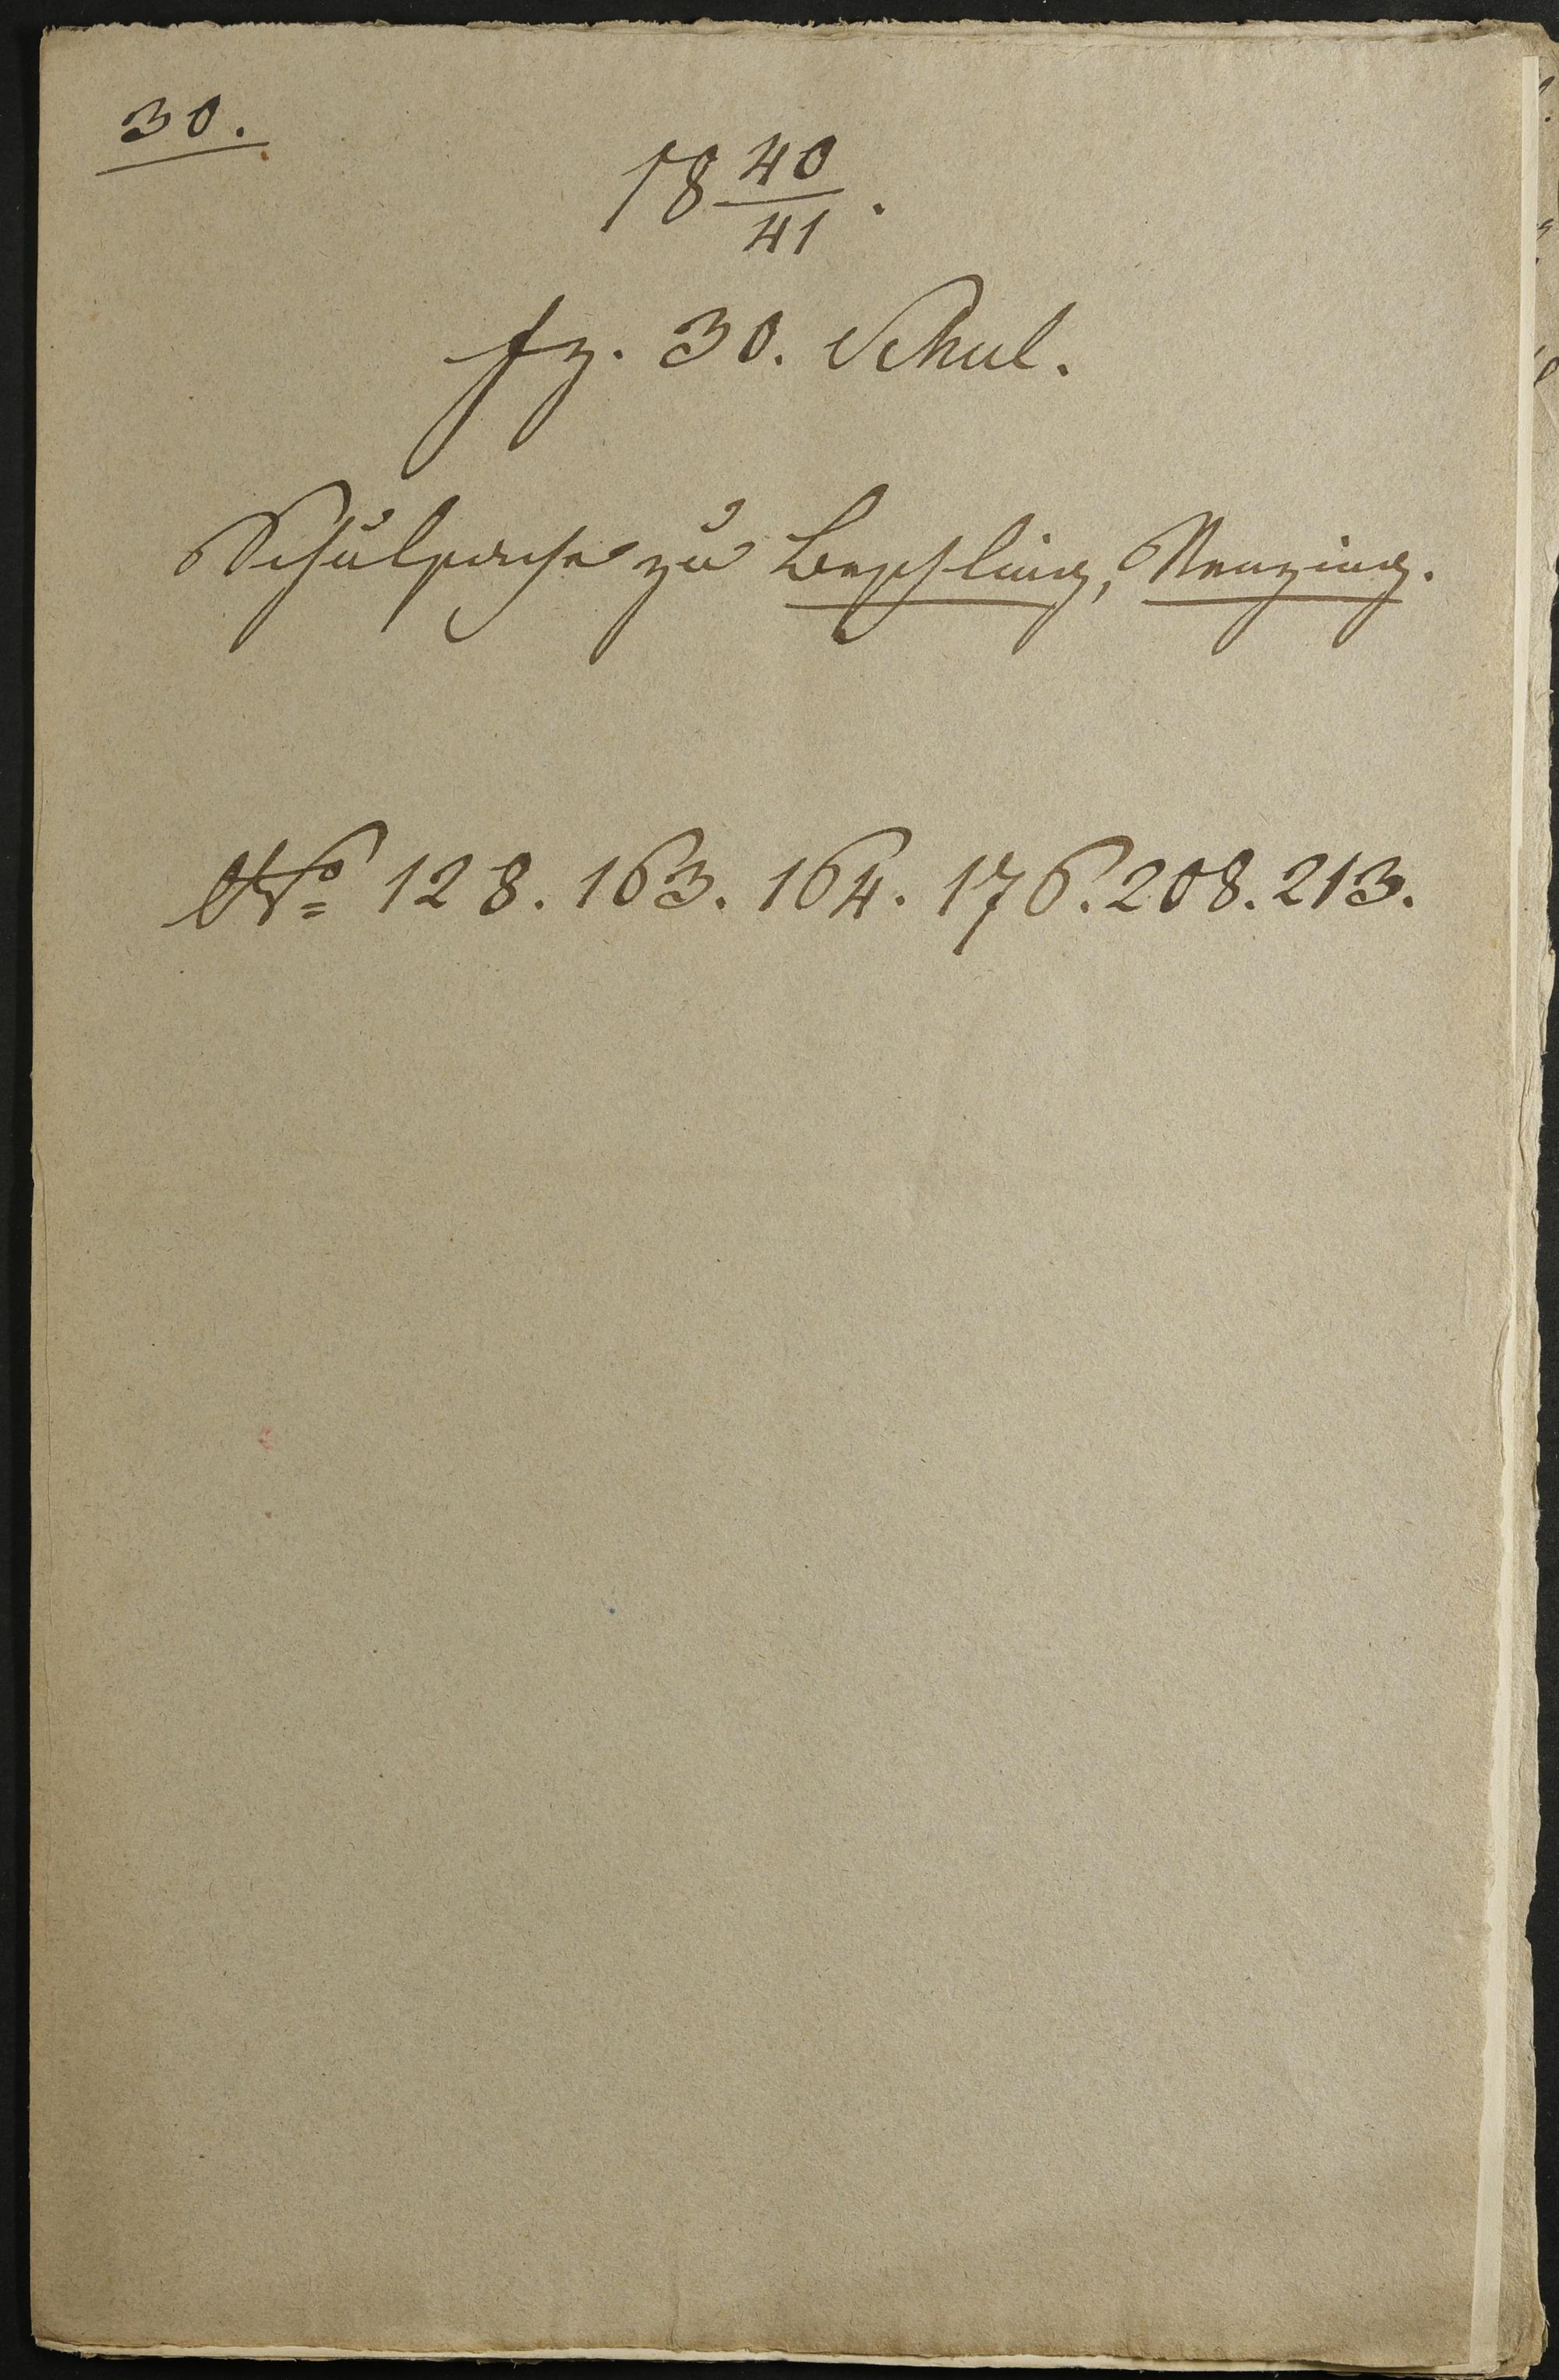 30.
18 40/41.
fz. 30. Schul.
Schulsache zu Beschling, Nenzing.
No 128. 163. 164. 176. 208. 213.